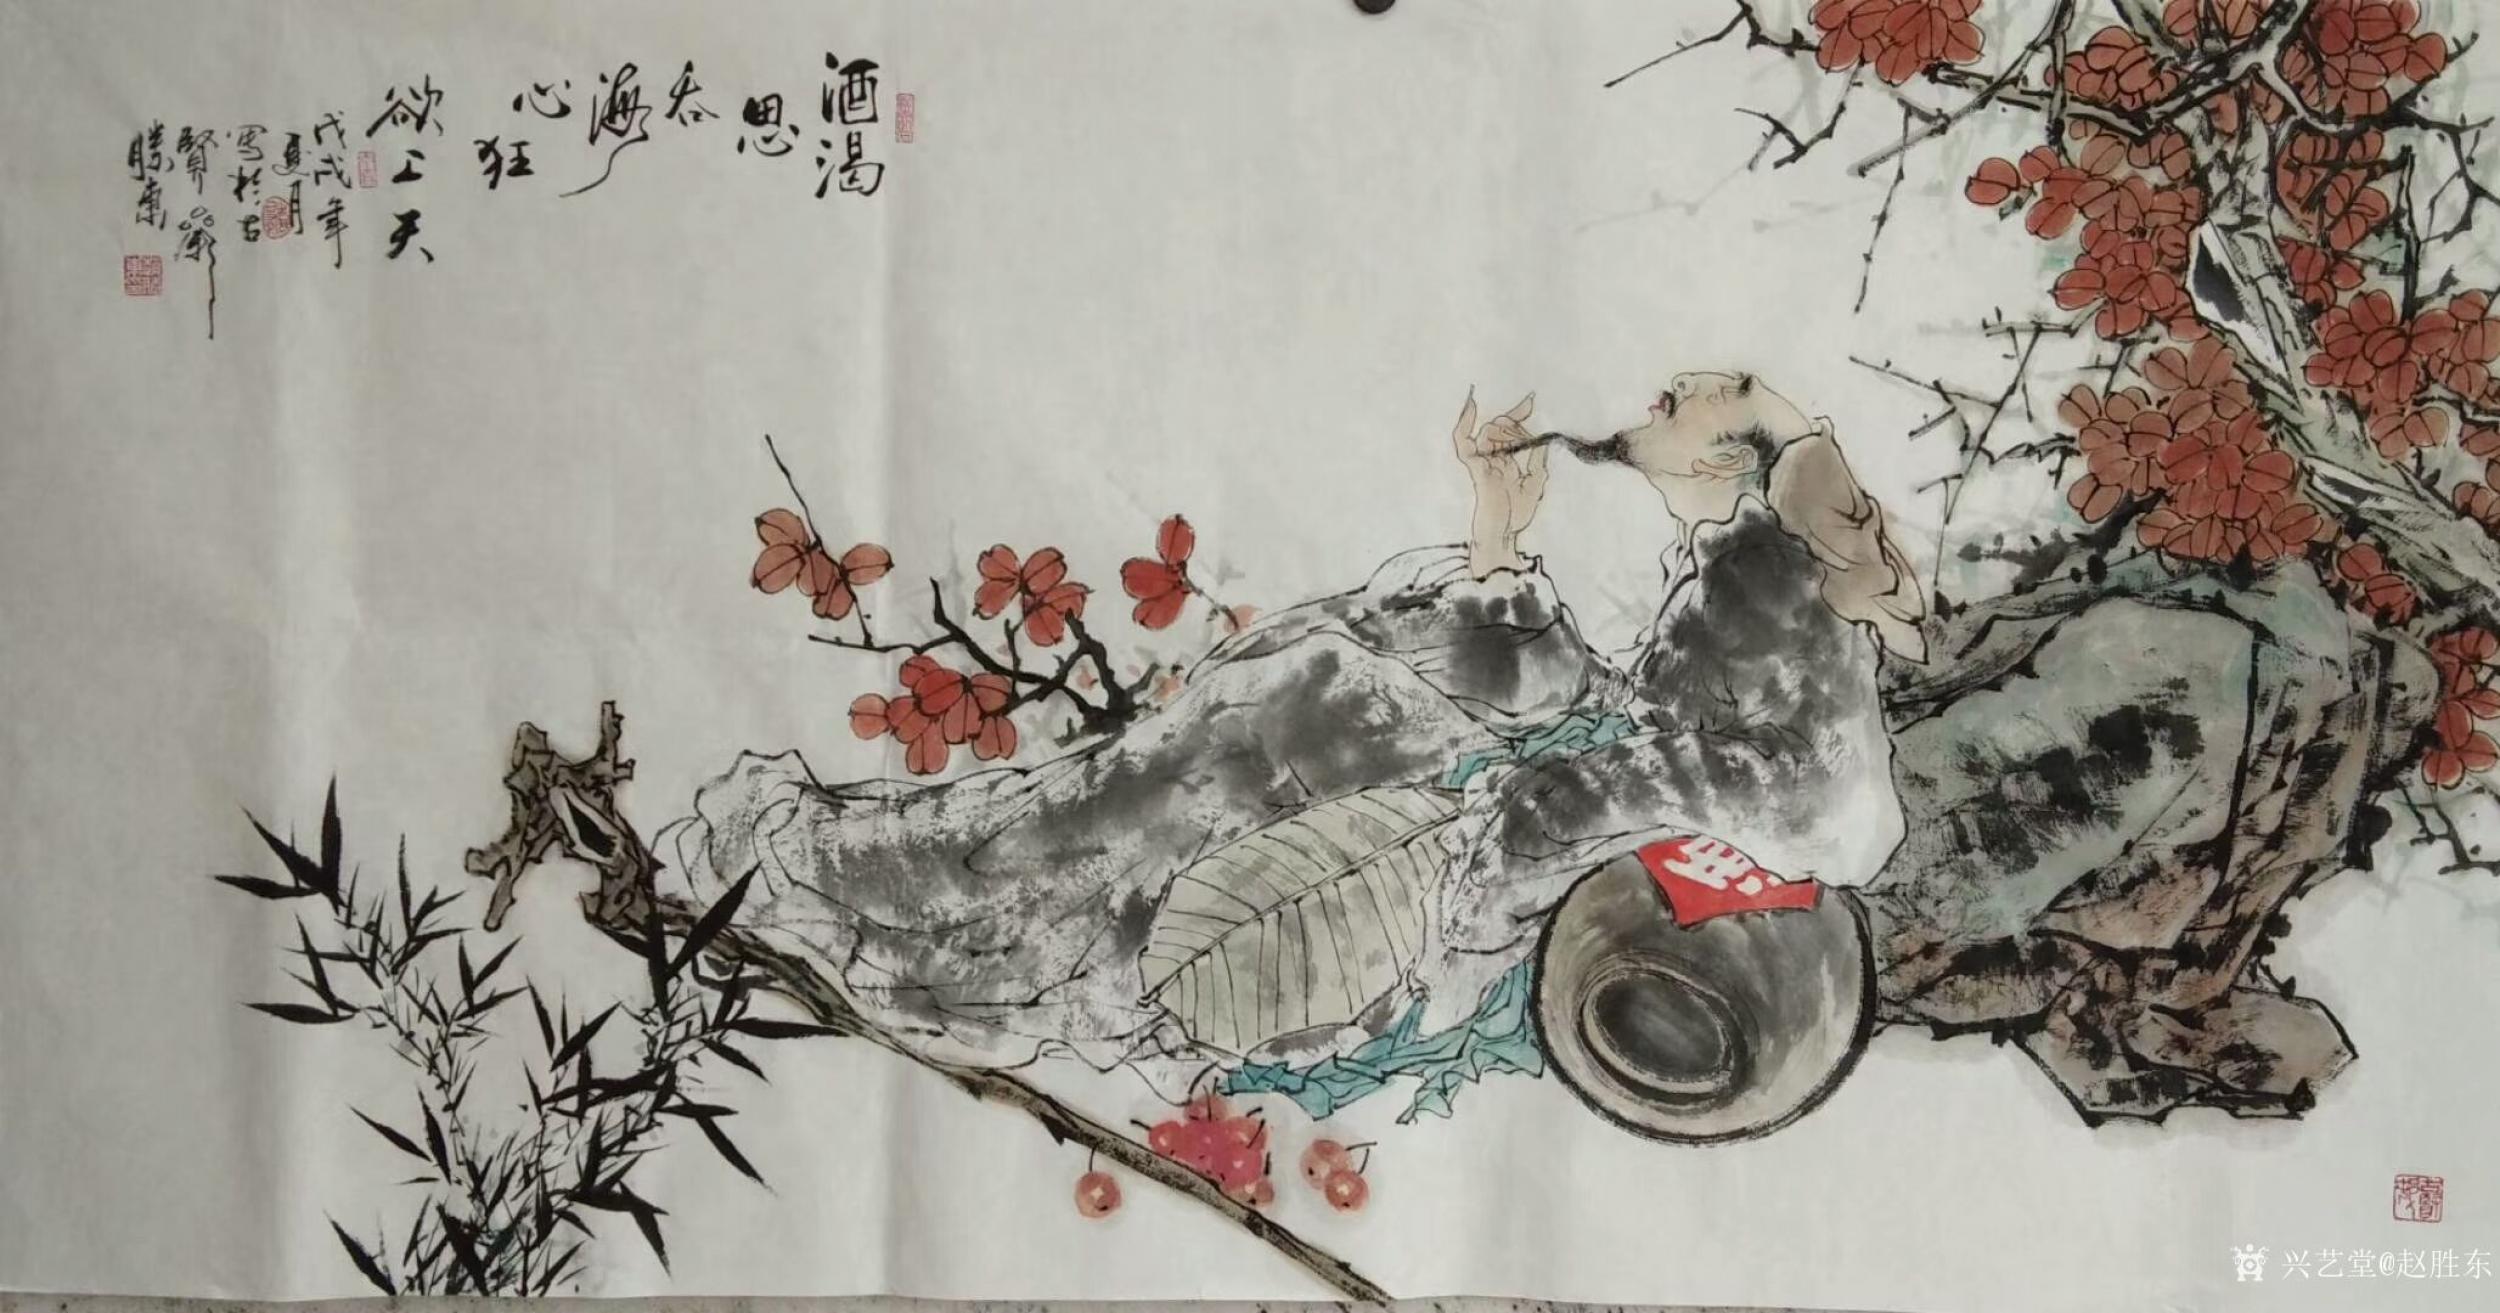 酒渴
思
吞
海
心
狂
欲上天
戊戌年
夏月
写於古
賢
勝東
兴艺堂@赵胜东